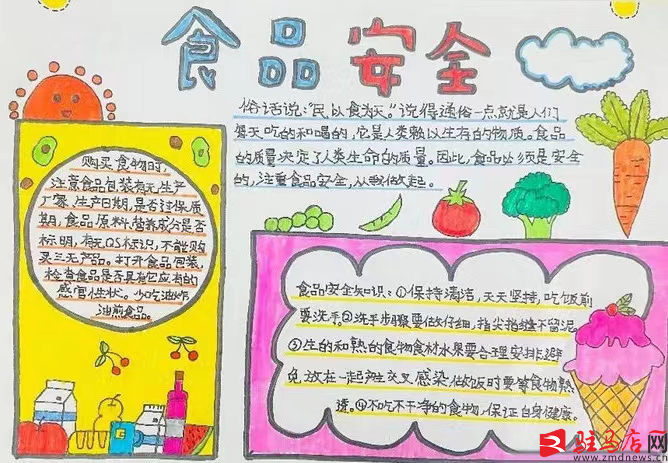 食品安全
俗话说:“民以食为天。”说得通俗一点就是人们
每天吃的和喝的,它是人类赖以生存的物质。食品
的质量决定了人类生命的质量。因此,食品必须是安全
的,注重食品安全,从我做起。
购买食物时,
注意食品包装有无生产
厂家、生产日期,是否过保质
期,食品原料、营养成分是否
标明,有无QS标识,不能购
买三无产品。打开食品包装,
检查食品是否具有它应有的
感官性状。少吃油炸
油煎食品。
食品安全知识:①保持清洁,天天坚持,吃饭前
要洗手。②洗手步骤要做仔细,指尖指缝不留泥。
③生的和熟的食物食材水果要合理安排,避
免放在一起产生交叉感染,做饭时要等食物熟
透。④不吃不干净的食物,保证自身健康。
驻马店网
www.zmdnews.cn